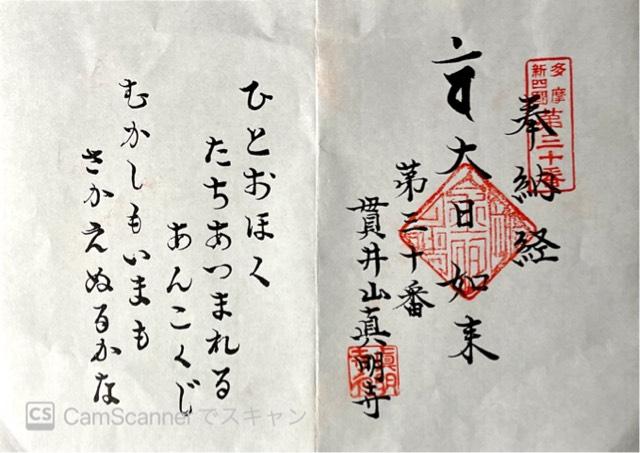 多摩
新四國
第三十番
奉納経
大日如来
第三十番
貫井山真明寺
ひとおほく
たちあつまれる
あんこくじ
むかしもいまも
さかえぬるかな
CS CamScannerでスキャン